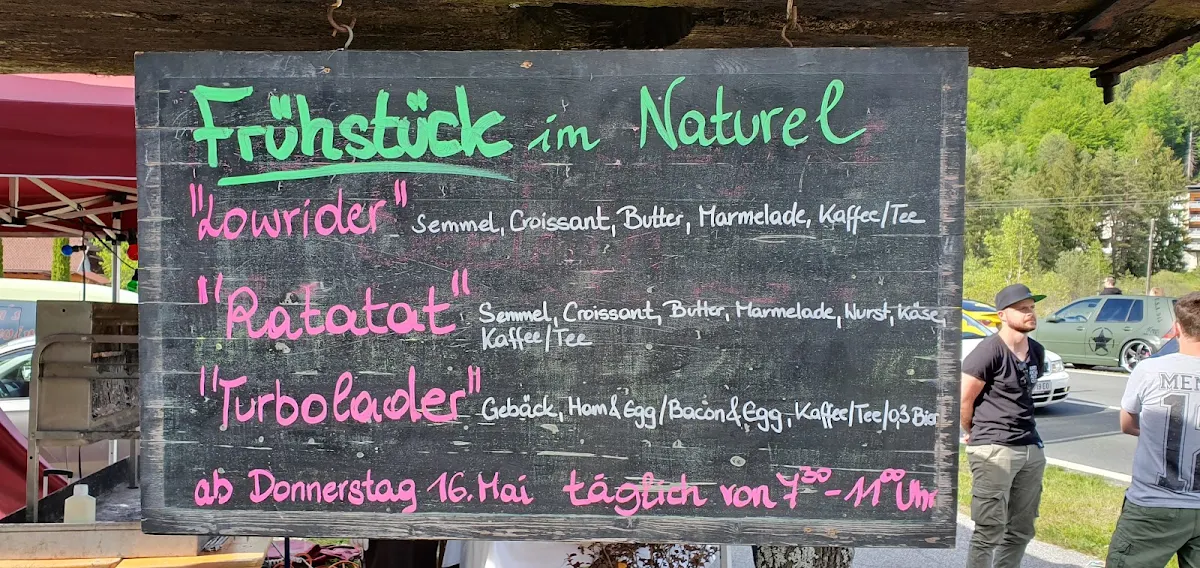 Frühstück im Naturel
"Lowrider" Semmel, Croissant, Butter, Marmelade, Kaffee/Tee
"Ratatat" Semmel, Croissant, Butter, Marmelade, Wurst, Käse,
Kaffee/Tee
"Turbolader" Gebäck, Ham&Egg/Bacon&Egg, Kaffee/Tee/0,3 Bier
ab Donnerstag 16. Mai täglich von 7³⁰-11⁰⁰ Uhr
MEN